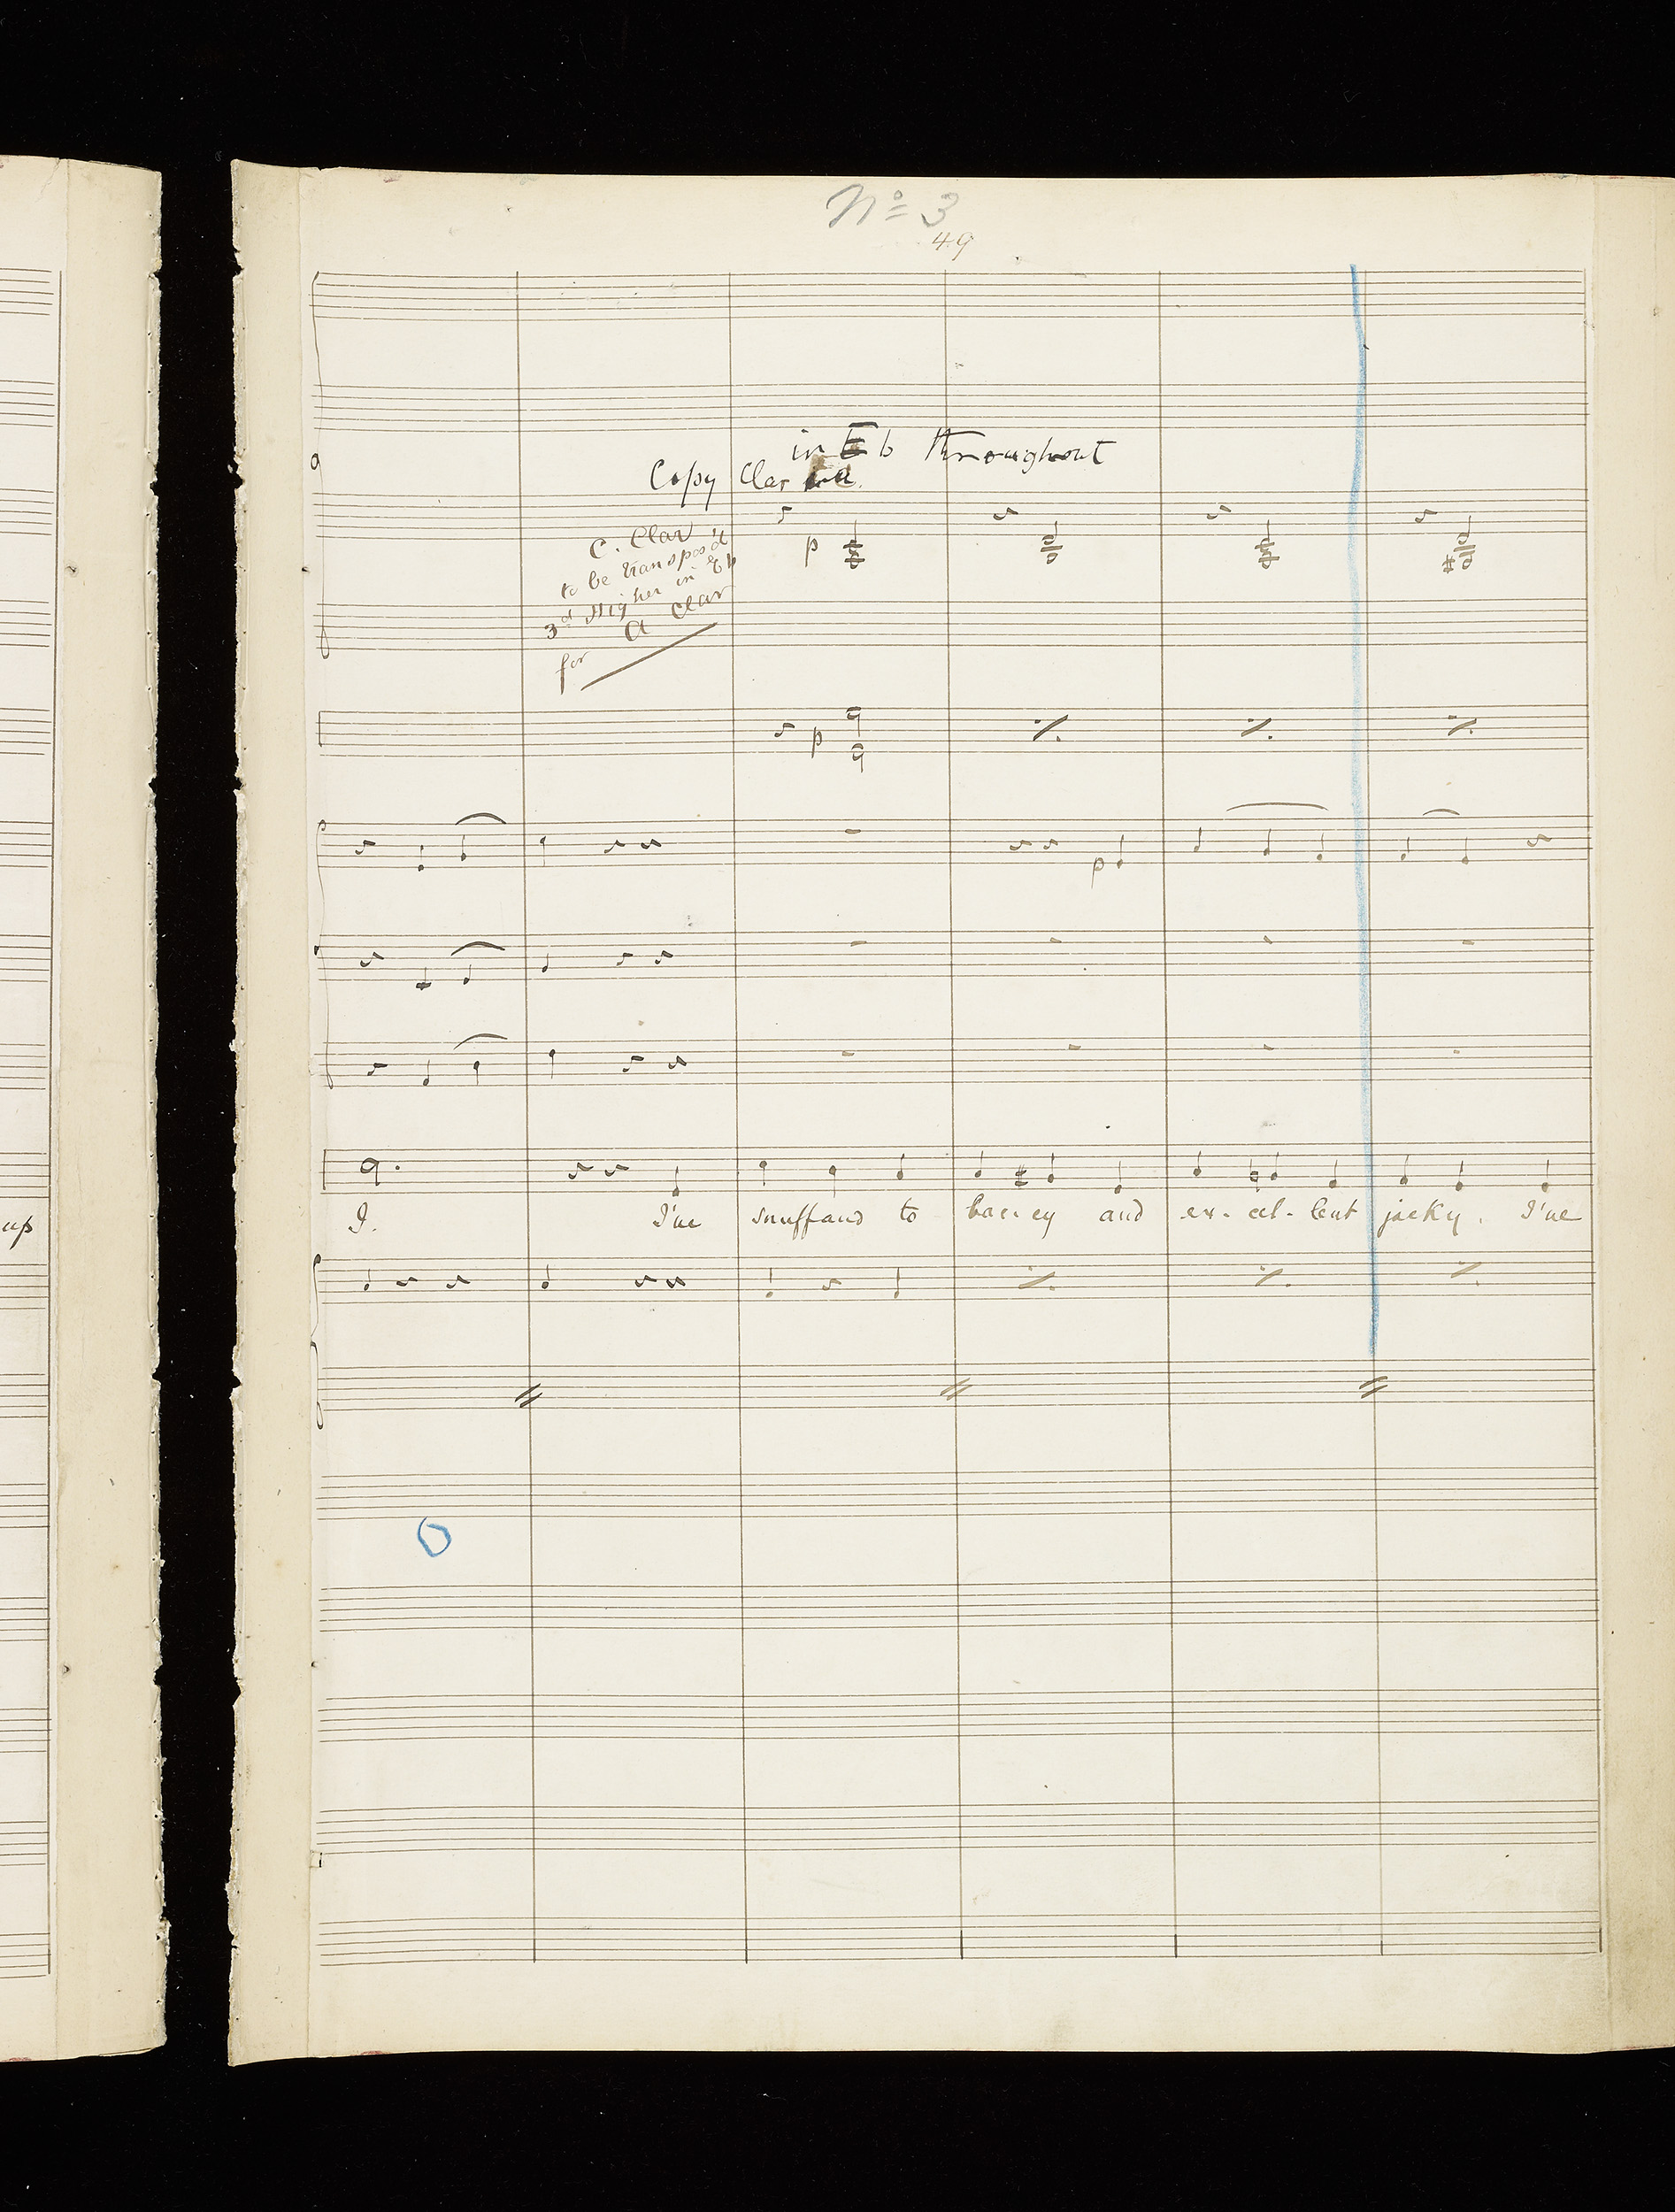 No 3
49
in Eb throughout
Copy Clar
C. Clar
to be transpos'd
3rd Higher in Eb
for A Clar
p
p
p
up
I. I've snuff and to baccy and ex- cel- lent jacky. I've